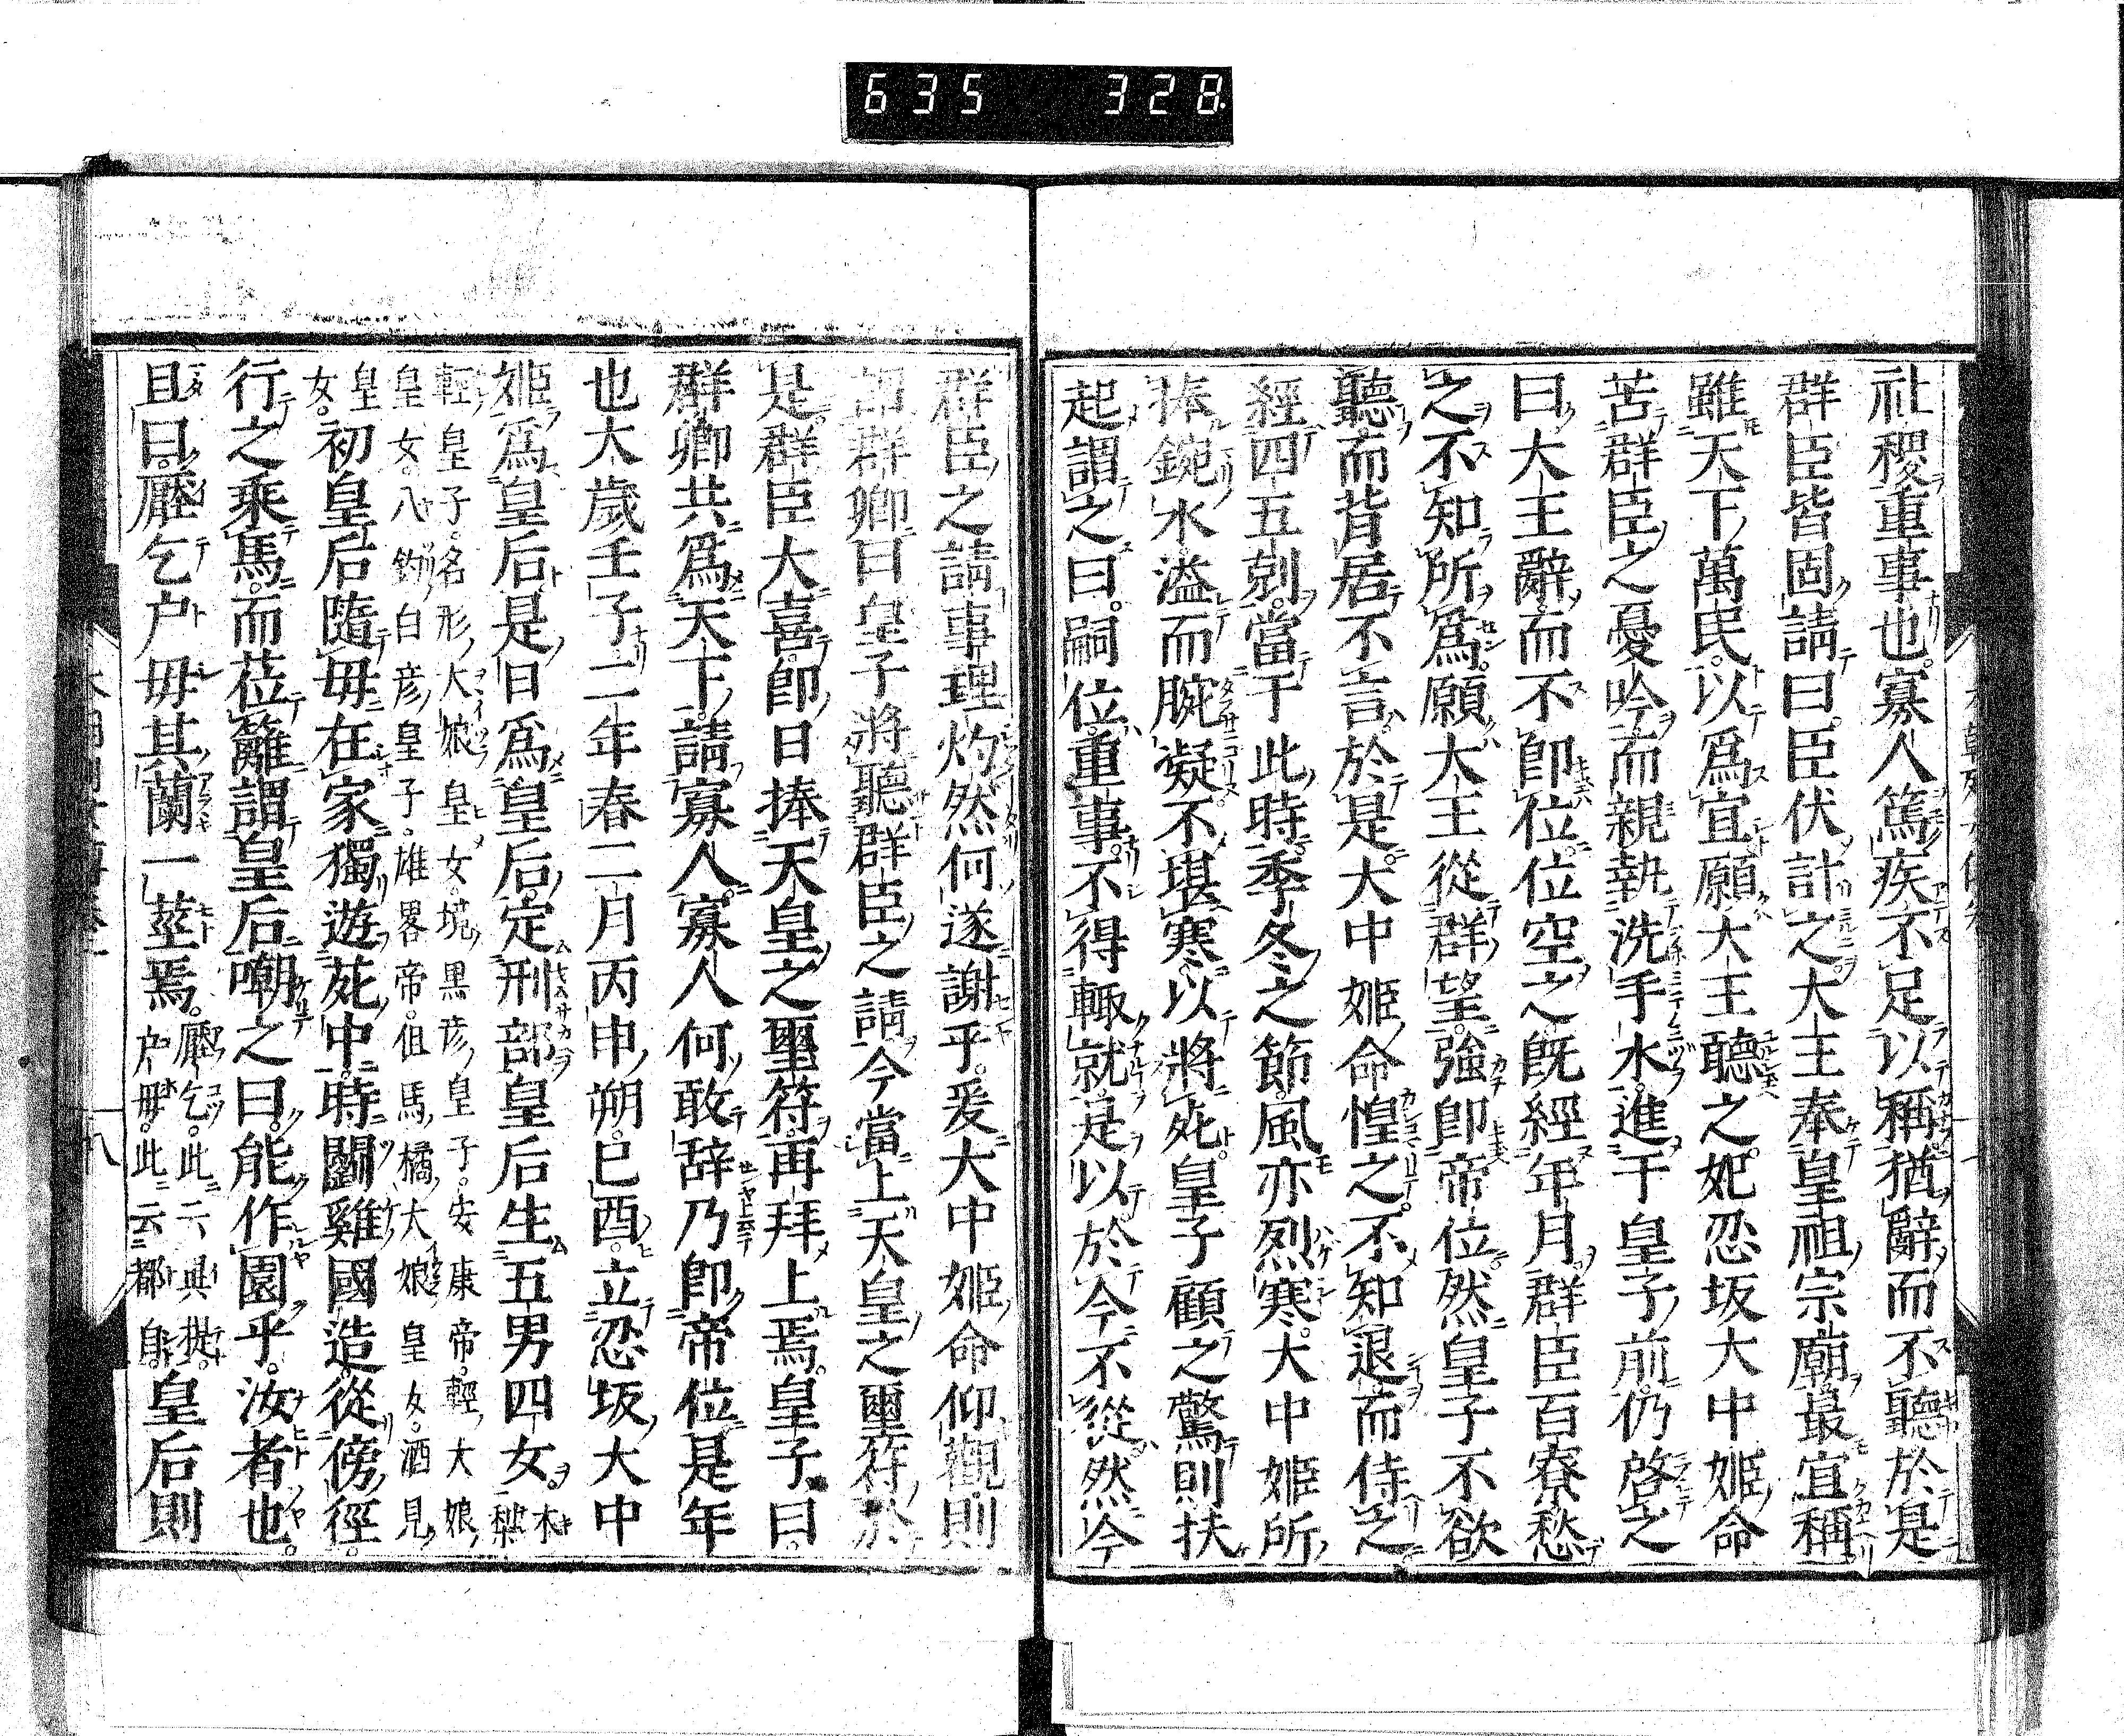 635 328
社稷重事也。寡人篤疾不足以稱猶辭而不聽於是
群臣皆固請曰。臣伏計之。大王奉皇祖宗廟最宜稱
雖天下萬民。以爲宜願大王聽之。妃忍坂大中姬命
苦群臣之憂吟而親執洗手水。進于皇子前。仍啓之
曰大王辭而不卽位。位空之旣經年月。群臣百寮愁
之不知所爲。願大王從群望。強卽帝位。然皇子不欲
聽。而背居不言。於是。大中姬命惶之。不知退而侍之
經四五剋。當于此時。季冬之節。風亦烈寒。大中姬所
捧鋺水溢而腕凝。不堪寒以將死。皇子顧之驚則扶
起謂之曰。嗣位。重事。不得輙就。是以於今不從。然今
群臣之請事理灼然何遂謝乎。爰大中姬命仰觀則
卽群卿曰皇子將聽群臣之請今當上天皇之璽符於
是。群臣大喜。卽日捧天皇之璽符。再拜上焉。皇子曰。
群卿共爲天下。請寡人。寡人何敢辞乃卽帝位。是年
也大歲壬子。二年春二月丙申朔。巳酉。立忍坂大中
姬爲皇后。是日爲皇后。定刑部。皇后生五男四女。木梨
輕皇子。名形大娘皇女。境黒彦皇子。安康帝。輕大娘
皇女。八釣白彦皇子。雄畧帝。但馬橘大娘皇女。酒見
皇女。初皇后隨母在家獨遊苑中。時闘雞國造。從傍徑。
行之乘馬。而莅籬謂皇后嘲之曰。能作園乎。汝者也。
且曰。壓乞戸毋其蘭一莖焉。壓乞。此云異提。戸毋。此云都自。皇后則
八